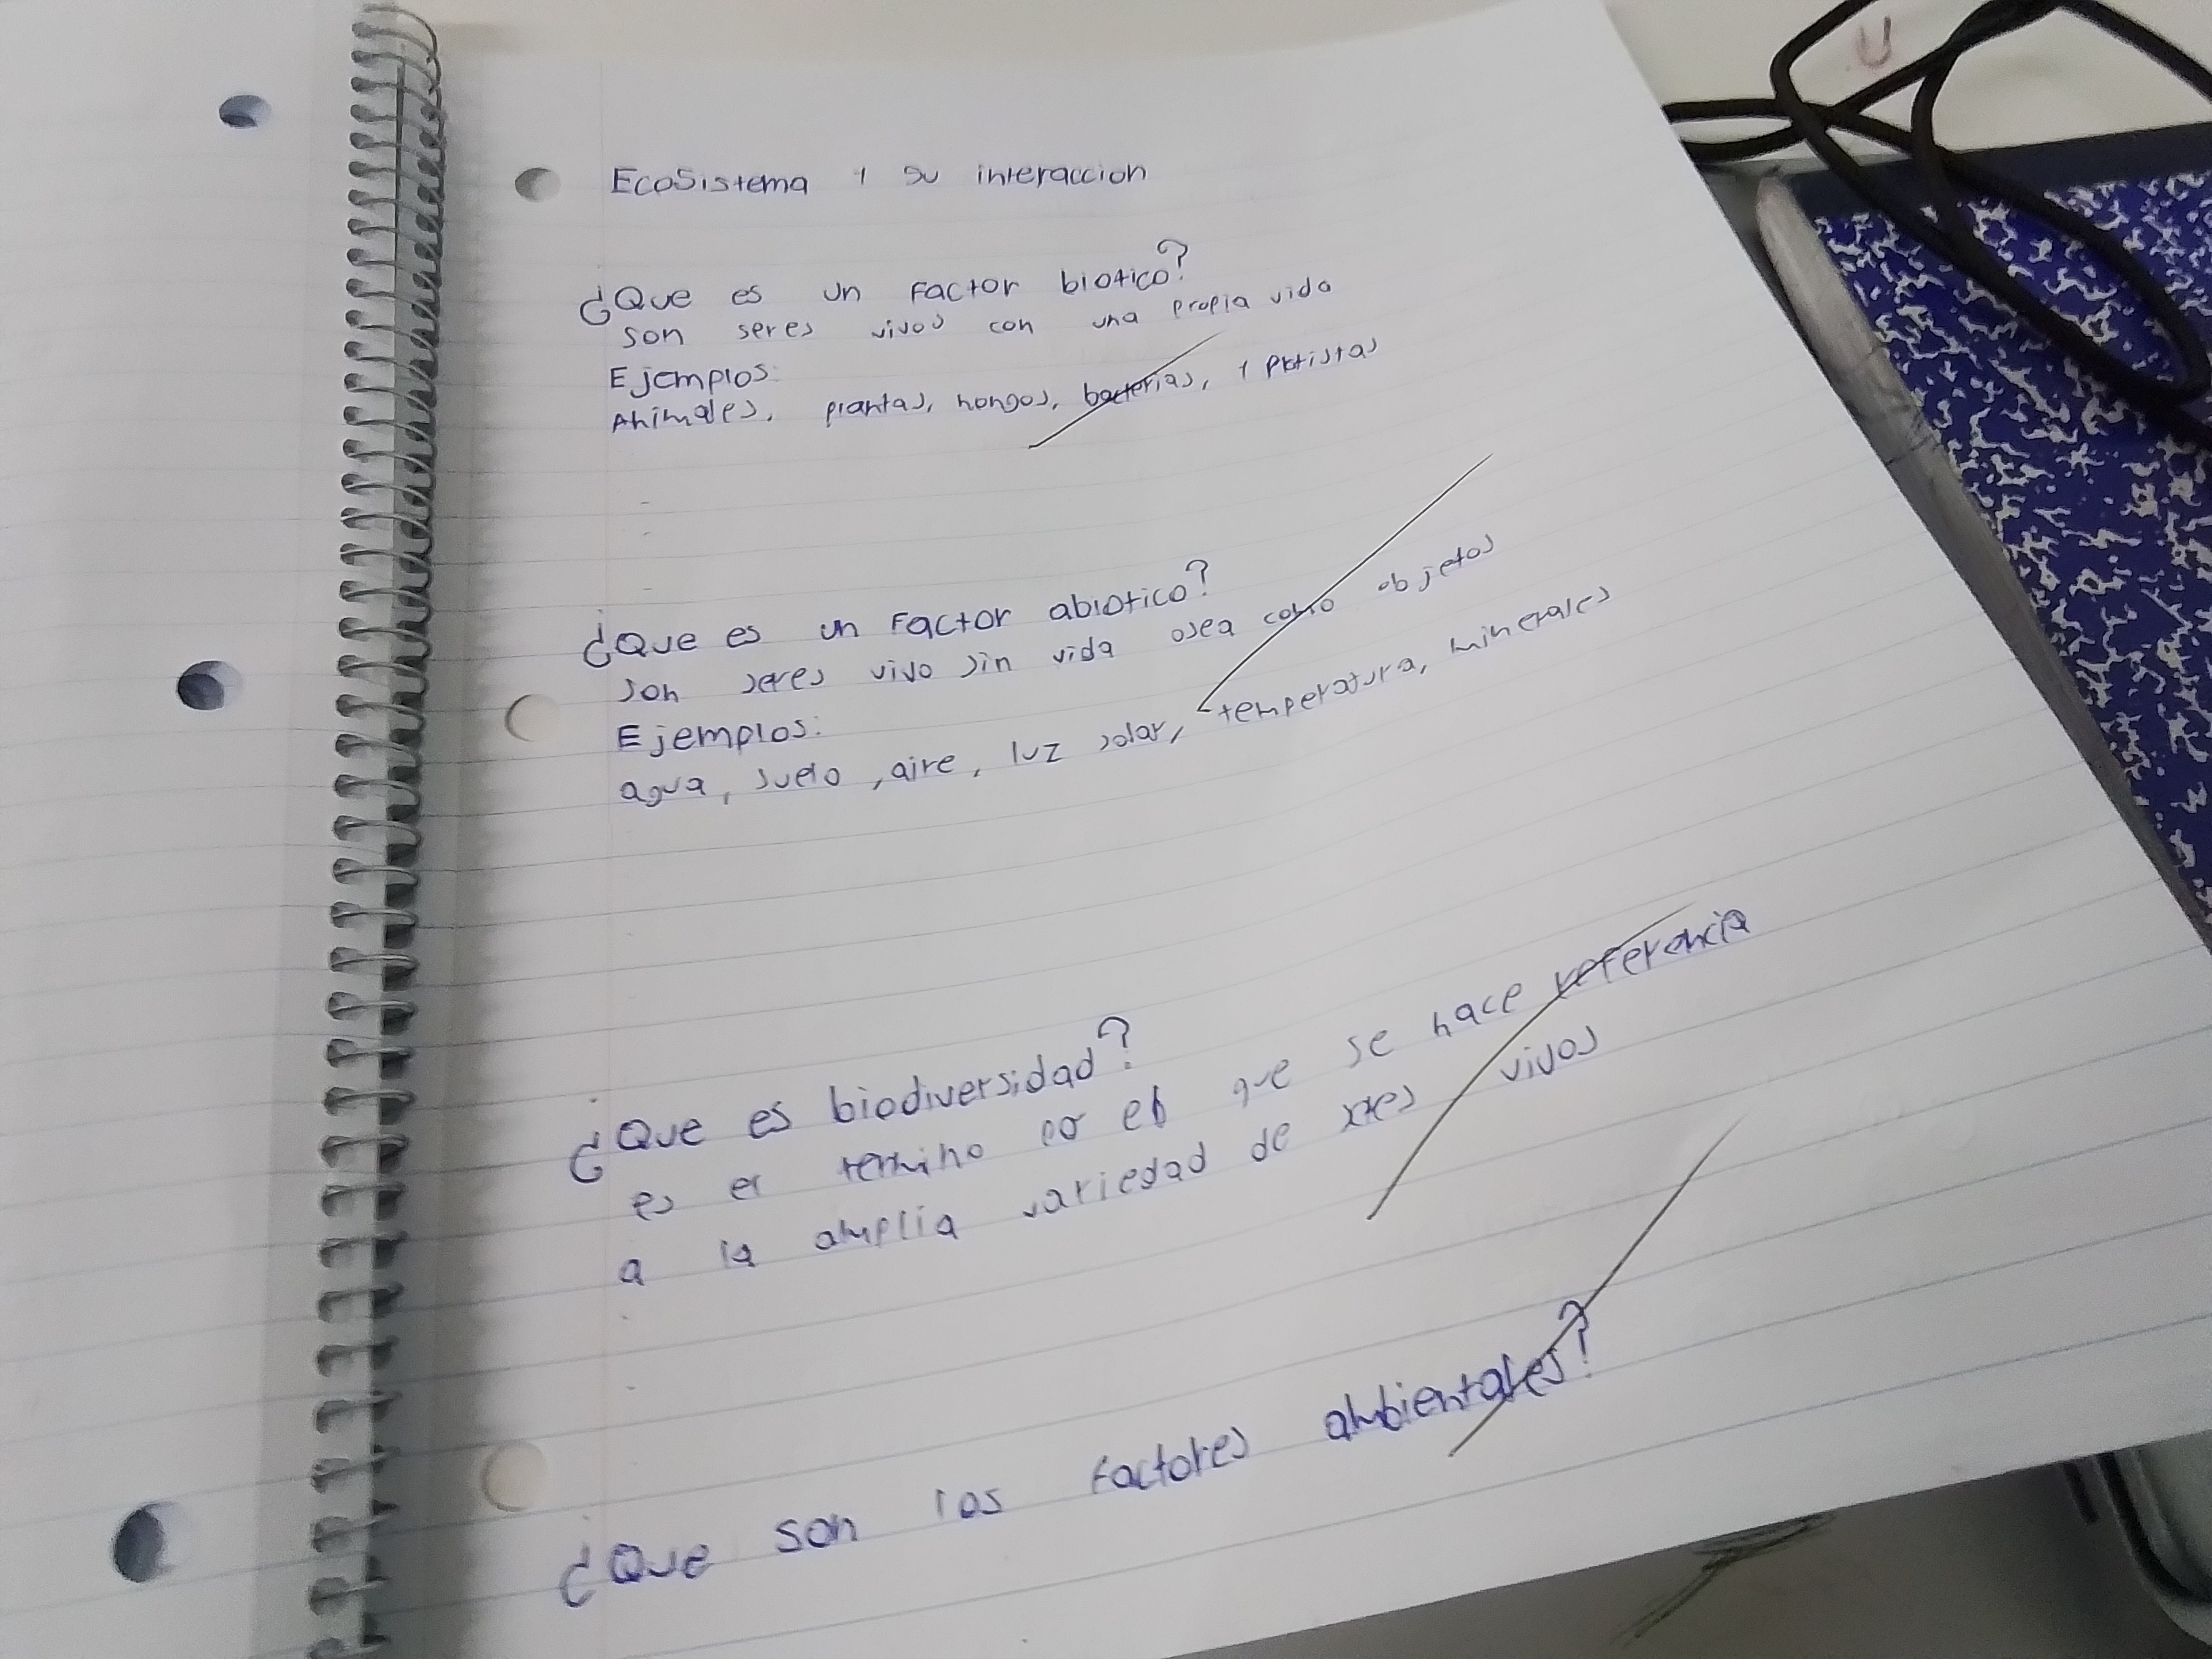 EcoSistema y su interaccion
¿Que es un Factor biotico?
son seres vivos con una propia vida
Ejemplos:
Animales, plantas, hongos, bacterias, y protistas
¿Que es un Factor abiotico?
son seres vivo sin vida osea como objetos
Ejemplos:
agua, suelo, aire, luz solar, temperatura, minerales
¿Que es biodiversidad?
es el termino por el que se hace referencia
a la amplia variedad de seres vivos
¿Que son los factores ambientales?
U